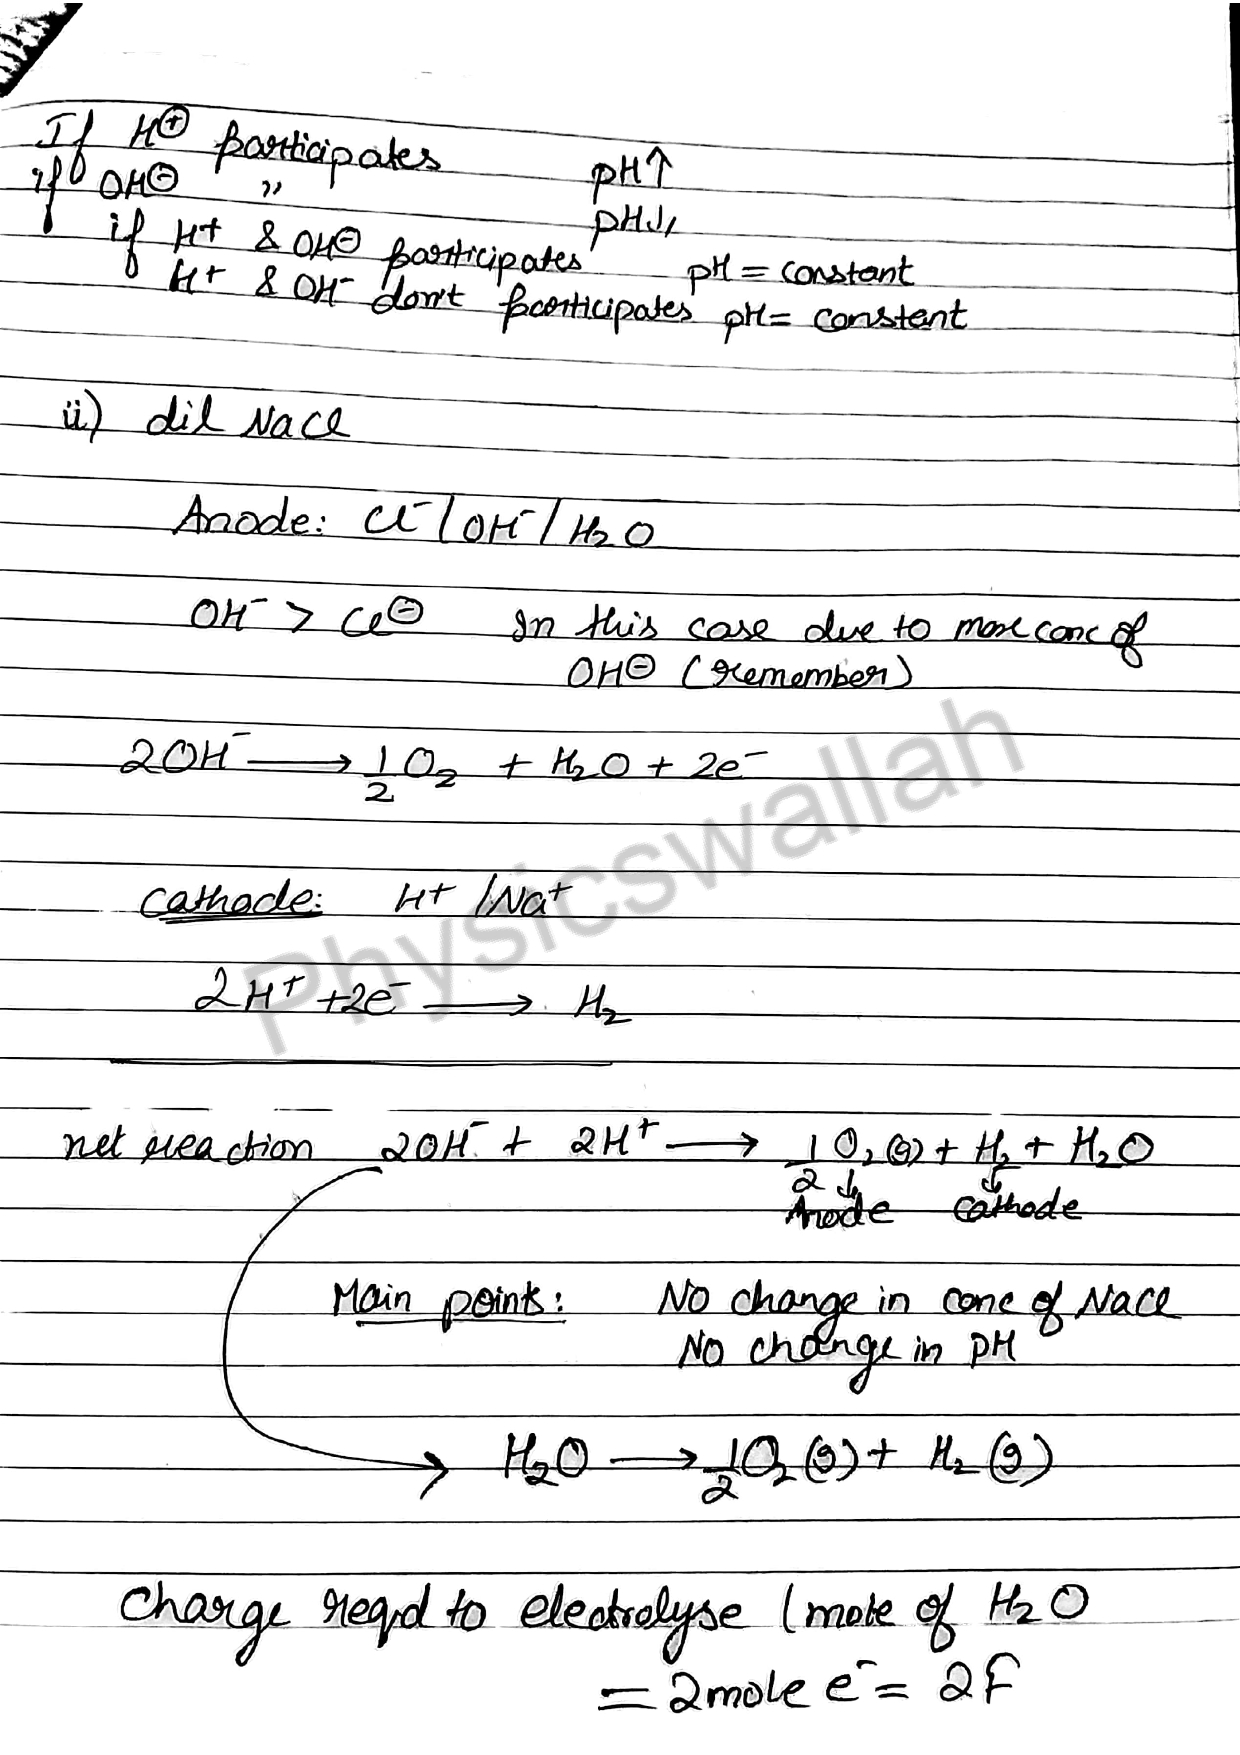 If H⊕ participates pH↑
if OH⊖ " pH↓
if H+ & OH⊖ participates pH = constant
H+ & OH- don't participates pH = constant
ii) dil NaCl
Anode: Cl- / OH- / H2O
OH- > Cl⊖ In this case due to more conc of
OH⊖ (remember)
2OH- ⟶ 1/2 O2 + H2O + 2e-
Cathode: H+ / Na+
2H+ + 2e- ⟶ H2
net reaction 2OH- + 2H+ ⟶ 1/2 O2(g) + H2 + H2O
↓ ↓
Anode Cathode
Main points: NO change in conc of NaCl
NO change in pH
H2O ⟶ 1/2 O2(g) + H2(g)
Charge reqd to electrolyse 1 mole of H2O
= 2 mole e- = 2F
Physicswallah